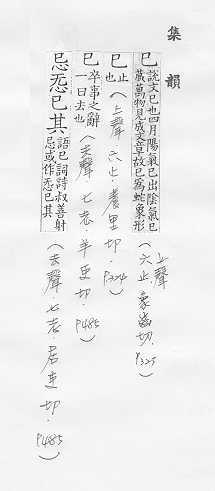 集韻
巳 說文巳也四月陽氣巳出陰氣巳
藏萬物見成文章故巳爲蛇象形
(上聲.六止.象齒切.P325)
已 止
也 (上聲.六止.養里切.P324)
已 卒事之辭
一曰去也 (去聲.七志.羊吏切.P485)
忌㤅已其 語已詞詩叔善射
忌或作㤅已其
(去聲.七志.居吏切.P485)